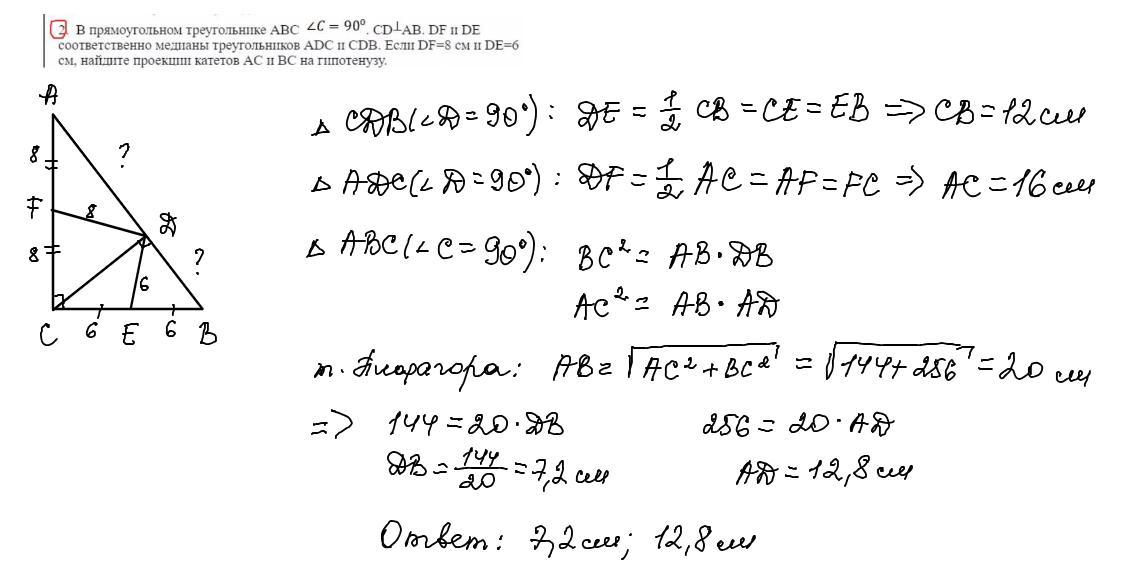 2. В прямоугольном треугольнике ABC ∠C = 90⁰. CD⊥AB. DF и DE
соответственно медианы треугольников ADC и CDB. Если DF=8 см и DE=6
см, найдите проекции катетов AC и BC на гипотенузу.
A
8
?
F
8
D
8
?
6
C
6
E
6
B
△ CDB(∠D=90°): DE = 1/2 CB = CE = EB => CB = 12 см
△ ADC(∠D=90°): DF = 1/2 AC = AF = FC => AC = 16 см
△ ABC(∠C=90°): BC² = AB·DB
AC² = AB·AD
т. Пифагора: AB = √AC²+BC² = √144+256 = 20 см
=> 144 = 20·DB 256 = 20·AD
DB = 144/20 = 7,2 см AD = 12,8 см
Ответ: 7,2 см; 12,8 см